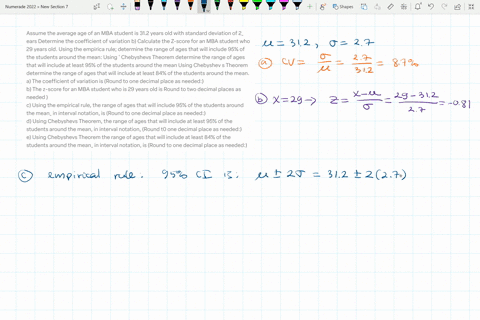 Numerade 2022 > New Section 7
Shapes
Assume the average age of an MBA student is 31.2 years old with standard deviation of 2,
ears Determine the coefficient of variation b) Calculate the Z-score for an MBA student who
29 years old. Using the empirica rule; determine the range of ages that will include 95% of
the students around the mean: Using ' Chebyshevs Theorem determine the range of ages
that will include at least 95% of the students around the mean Using Chebyshev s Theorem
determine the range of ages that will include at least 84% of the students around the mean.
a) The coefficient of variation is (Round to one decimal place as needed:)
b) The z-score for an MBA student who is 29 years old is Round to two decimal places as
needed:)
c) Using the empirical rule, the range of ages that will include 95% of the students around
the mean, in interval notation, is (Round to one decimal place as needed:)
d) Using Chebyshevs Theorem, the range of ages that will include at least 95% of the
students around the mean, in interval notation, (Round t0 one decimal place as needed:)
e) Using Chebyshevs Theorem the range of ages that will include at least 84% of the
students around the mean, in interval notation, is (Round to one decimal place as needed:)
μ = 31.2 , σ = 2.7
(a) CV = σ/μ = 2.7/31.2 = 8.7%
(b) X = 29 → Z = (x-μ)/σ = (29-31.2)/2.7 = -0.81
(c) empirical rule. 95% CI is. μ ± 2σ = 31.2 ± 2(2.7)